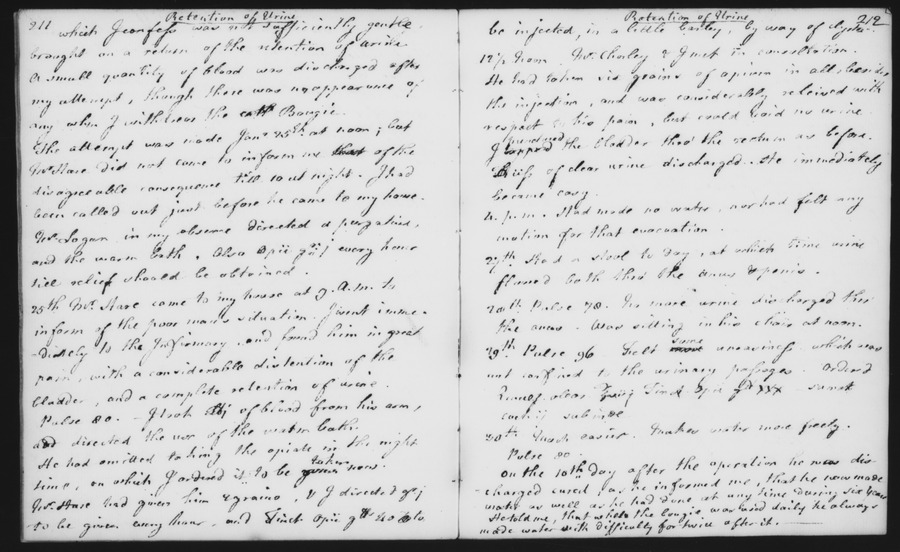 211 Retention of Urine
which I confess was not sufficiently gentle
brought on a return of the retention of urine.
A small quantity of blood was discharged after
my attempt, though there was no appearance of
any when I withdrew the cath Bougie.
The attempt was made June 25th at noon; but
Mr. Stare did not come to inform me that of the
disagreeable consequence till 10 at night. I had
been called out just before he came to my house.
Mr. Logan in my absence directed a purgative,
and the warm bath. Also Opii gr j every hour
till relief should be obtained.
25th Mr. Stare came to my house at 9. A.M. to
inform of the poor man's situation. I went imme-
diately to the Infirmary, and found him in great
pain, with a considerable distention of the
bladder, and a complete retention of urine.
Pulse 80. I took of blood from his arm,
and directed the use of the warm bath.
He had omitted taking the opiate in the night
time, on which I ordered it to be given taken now.
Mr. Stare had given him 2 grains, & I directed gr j
to be given every hour, and Tinct Opii gtt 40 to
Retention of Urine 212
be injected, in a little barley, by way of clyster.
12½ Noon. Mr. Chorley & I met in consultation.
He had taken six grains of opium in all, besides
the injection, and was considerably relieved with
respect to his pain, but could void no urine.
I punctured the bladder thro' the rectum as before.
of clear urine discharged. He immediately
became easy.
4. p.m. Had made no water, nor had felt any
motion for that evacuation.
27th Had a stool to day, at which time urine
flowed both thro' the anus & penis.
28th Pulse 78. No more urine discharged thro'
the anus. Was sitting in his chair at noon.
29th Pulse 96. Felt some uneasiness which was
not confined to the urinary passages. Ordered
Tinct Opii gtt xxx
30th Much easier. Makes water more freely.
Pulse 80.
On the 10th day after the operation he was dis-
charged cured; as he informed me, that he now made
water as well as he had done at any time during six years
He told me, that while the bougie was used daily he always
made water with difficulty for twice after it.